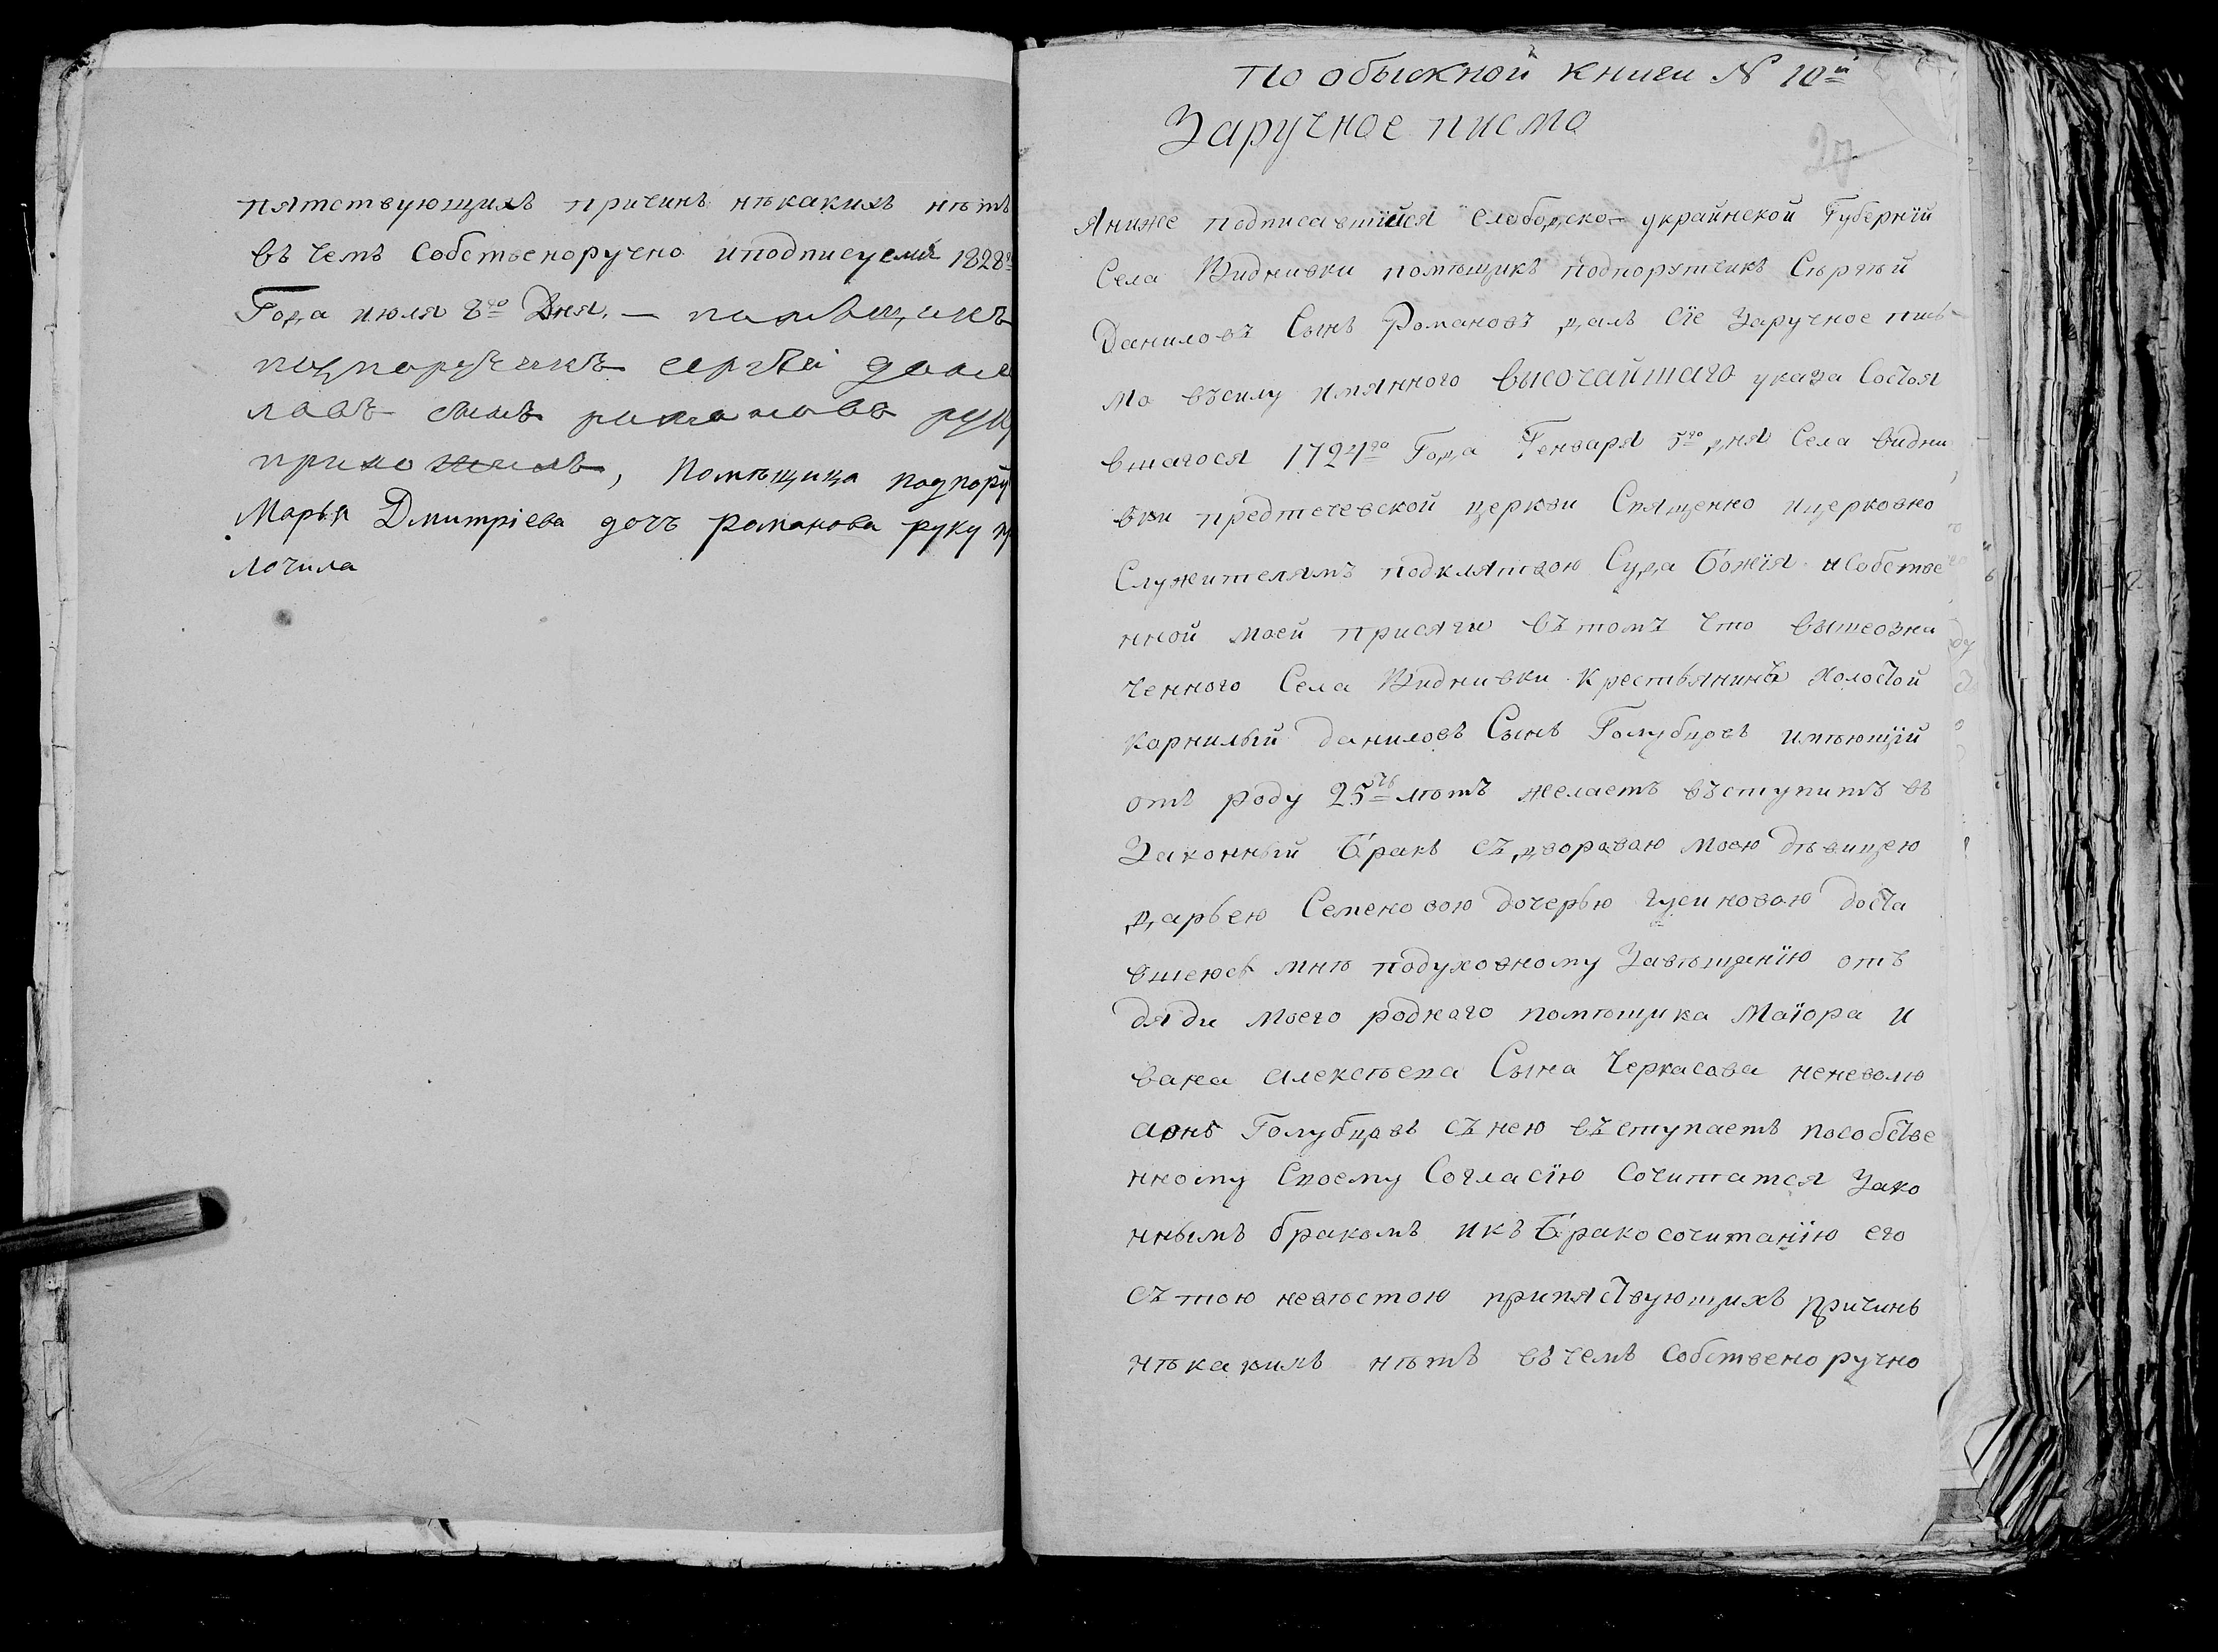 пятствующихъ причинъ нѣкакихъ нѣтъ
въ чемъ собственоручно иподписуемъ 1828го
Года июля 8го Дня, — помѣщикъ
подпоручикъ сергѣй дани
ловъ сынъ романовъ руку
приложилъ, Помѣщица подпору
Марья Дмитріева дочъ романова руку п
ложила
По обыскной книги N 10й
Заручное писмо
27
Яниже подписавшийся Слободско-украинской Губерній
Села Видновки помѣщикъ подпорутчикъ Сѣргѣй
Даниловъ Сынъ Романовъ далъ сіе Заручное пись-
мо въсилу имяннoго Высочайшаго указа Состоя
вшагося 1724го Года Генваря 5го дня Села Видни
вки предтечевской церкви Священно ицерковно
Служителямъ подклятвою Суда Божія исобстве
нной моей присяги вътомъ что вышеозна
ченного Села Видновки Крестьянинъ Холостой
Корнилый даниловъ Сынъ Голубцовъ имѣющій
отъ роду 25ть лѣтъ желаетъ въступитъ въ
Законный Бракъ съдворовою моею дѣвицею
дарьею Семеновою дочерью гусиновою доста
вшеюсь мнѣ подуховному Завѣщанію отъ
дяди моего роднаго помѣщика Маіора и
вана алексѣева Сына Черкасова неневолю
аонъ Голубцовъ сънею въступаетъ пособстве
нному своему Согласію сочитатся Зако
ннымъ бракомъ икъ Бракосочитанію его
сътою невѣстою припяствующихъ причинъ
нѣкакихъ нѣтъ въчемъ собственоручно